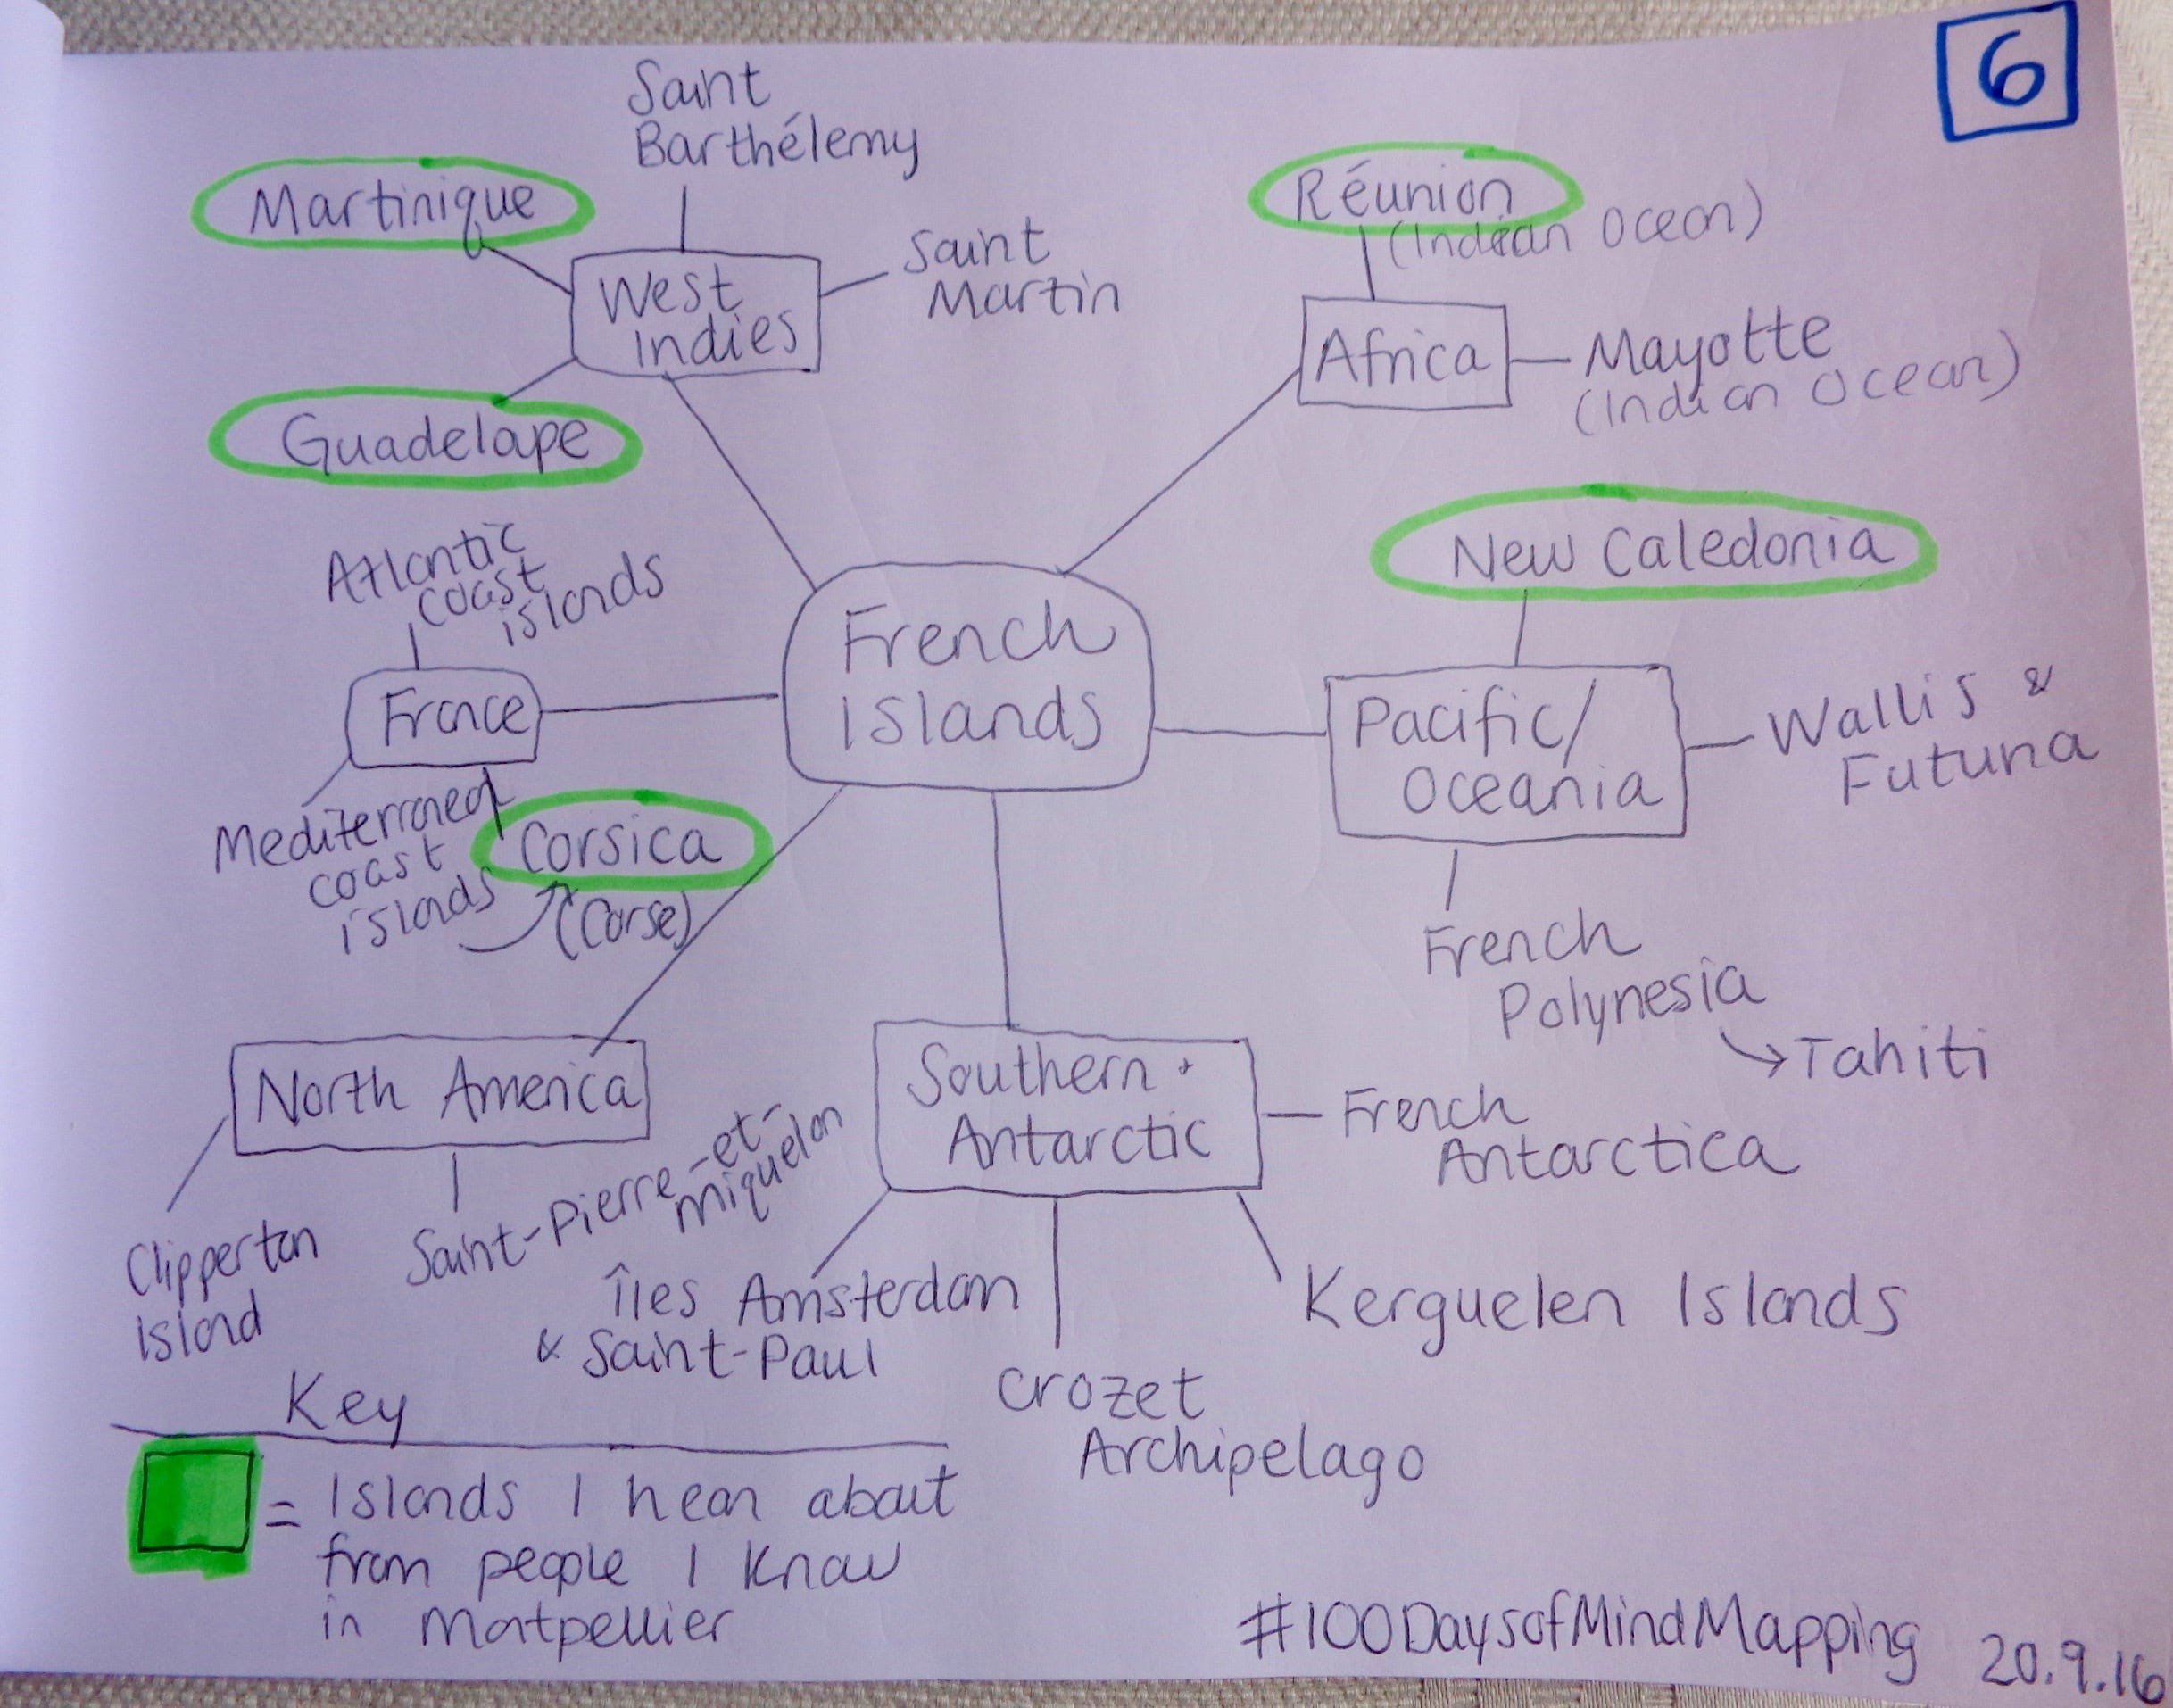 6
Saint
Barthélemy
Martinique
West
Indies
Saint
Martin
Guadelape
Réunion
(Indian Ocean)
Africa
Mayotte
(Indian Ocean)
Atlantic
coast
islands
France
Mediterranean
coast
islands
Corsica
(Corse)
French
Islands
New Caledonia
Pacific/
Oceania
Wallis &
Futuna
French
Polynesia
→Tahiti
North America
Clipperton
Island
Saint-Pierre-et-
Miquelon
Southern +
Antarctic
French
Antarctica
Îles Amsterdam
& Saint-Paul
Crozet
Archipelago
Kerguelen Islands
Key
= Islands I hear about
from people I know
in Montpellier
#100DaysofMindMapping
20.9.16